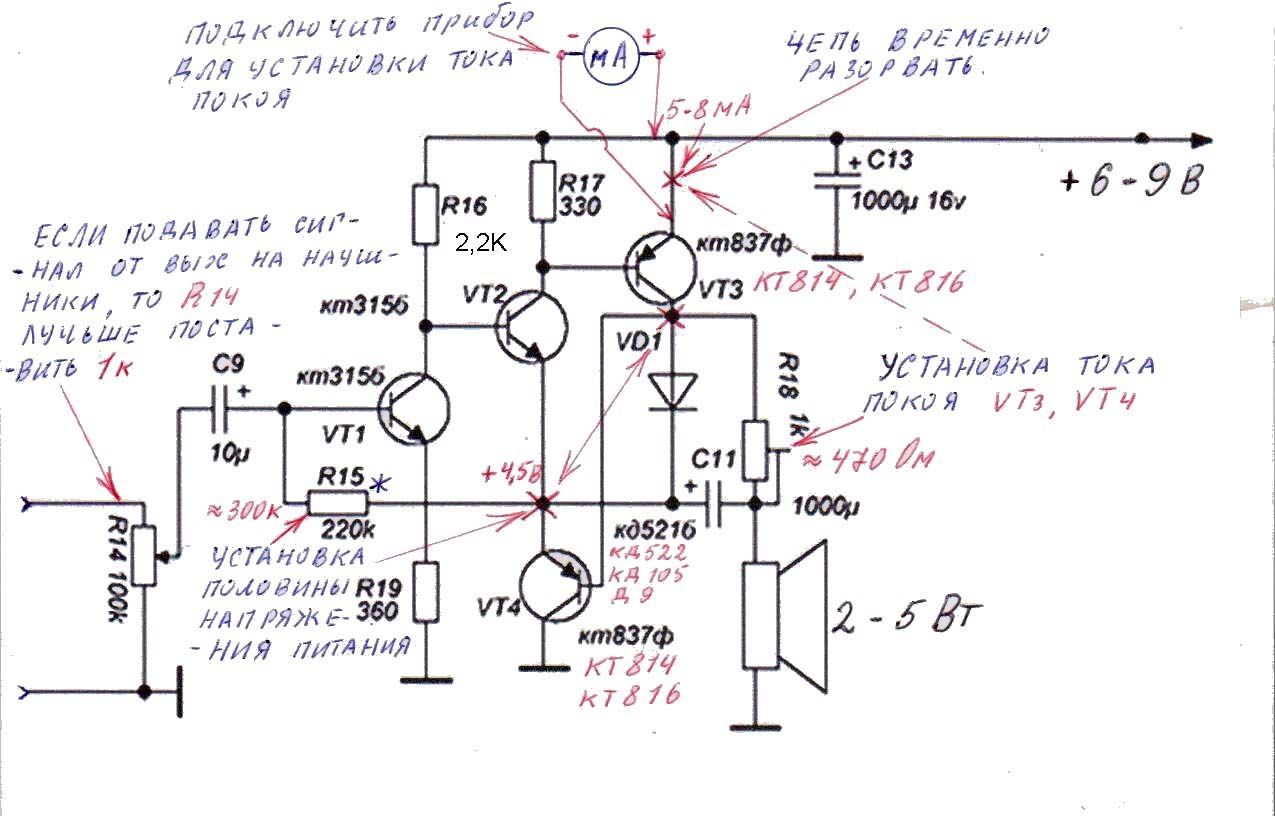 ПОДКЛЮЧИТЬ ПРИБОР
ДЛЯ УСТАНОВКИ ТОКА
ПОКОЯ
- мА +
ЦЕПЬ ВРЕМЕННО
РАЗОРВАТЬ.
5-8мА
+ 6 - 9 В
+ C13
1000μ 16v
R17
330
R16
2,2K
ЕСЛИ ПОДАВАТЬ СИГ-
-НАЛ ОТ ВЫХ НА НАУШ-
НИКИ, ТО R14
ЛУЧЬШЕ ПОСТА-
-ВИТЬ 1к
кт837ф
VT3
КТ814, КТ816
VT2
кт315б
VD1
кт315б
VT1
C9
+
10μ
R18 1k
УСТАНОВКА ТОКА
ПОКОЯ VT3, VT4
≈ 470 Ом
C11
+
1000μ
+4,5В
R15 *
220k
≈300к
R14 100k
УСТАНОВКА
ПОЛОВИНЫ
НАПРЯЖЕ-
-НИЯ ПИТАНИЯ
R19
360
VT4
кд521б
КД522
КД105
Д9
кт837ф
КТ814
КТ816
2 - 5 Вт